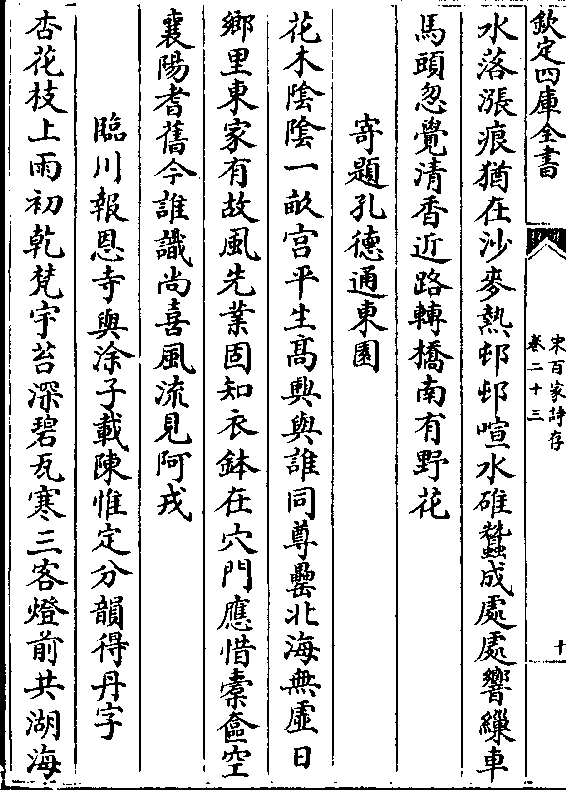 欽定四庫全書
宋百家詩存
卷二十三
十
水落漲痕猶在沙麥熟邨邨喧水碓蠶成處處響繅車
馬頭忽覺清香近路轉橋南有野花
寄題孔德通東園
花木陰陰一畝宮平生高興與誰同尊罍北海無虛日
鄉里東家有故風先業固知衣鉢在穴門應惜橐奩空
襄陽耆舊今誰識尚喜風流見阿戎
臨川報恩寺與涂子載陳惟定分韻得丹字
杏花枝上雨初乾梵宇苔深碧瓦寒三客燈前共湖海